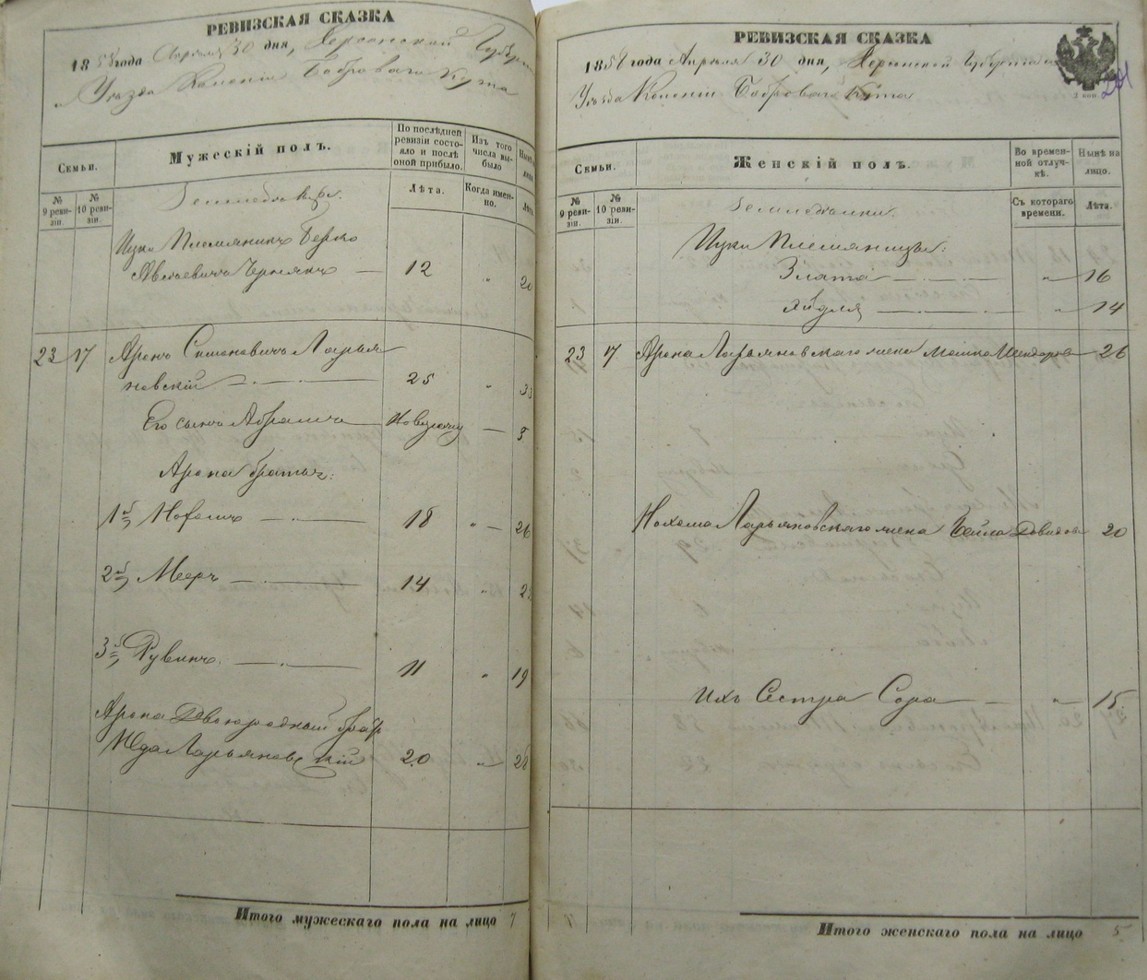 РЕВИЗСКАЯ СКАЗКА
1858 года Апреля 30 дня, Херсонской Губерніи
Уѣзда Колоніи Боброваго Кута
Семьи.
Мужескій полъ.
По послѣдней ревизіи состояло и послѣ оной прибыло.
Изъ того числа выбыло
№ 9 ревизіи.
№ 10 ревизіи.
Лѣта.
Когда именно.
Лѣта
Земледѣльцы.
Ицки Племянникъ Берко
Чернякъ — 12 " 20
23 17 Аронъ Симоновичъ Ларья
новскій — 25 " 33
Его сынъ Абрамъ — Новорожд — 5
Арона братья:
1й Нохомъ — 18 " 26
2й Мееръ — 14 "
3й Рувинъ — 11 " 19
Арона Двоюродный братъ
Ларьяновскій 20 " 28
Итого мужескаго пола на лицо 7
РЕВИЗСКАЯ СКАЗКА
1858 года Апреля 30 дня, Херсонской Губерніи
Уѣзда Колоніи Боброваго Кута
201
Семьи.
Женскій полъ.
Во временной отлучкѣ.
Нынѣ на лицо.
№ 9 ревизіи.
№ 10 ревизіи.
Съ котораго времени.
Лѣта.
Ицки Племянницы:
Злата — " 16
Хайдля — " 14
23 17 Арона Ларьяновскаго жена 26
Нохома Ларьяновскаго жена Бейла 20
Ихъ Сестра Сора — " 15
Итого женскаго пола на лицо 5